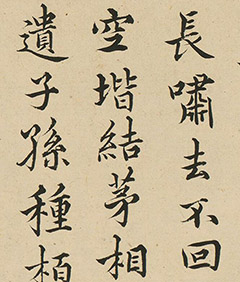 長嘯去不回
空堦結茅相
遺子孫種栢